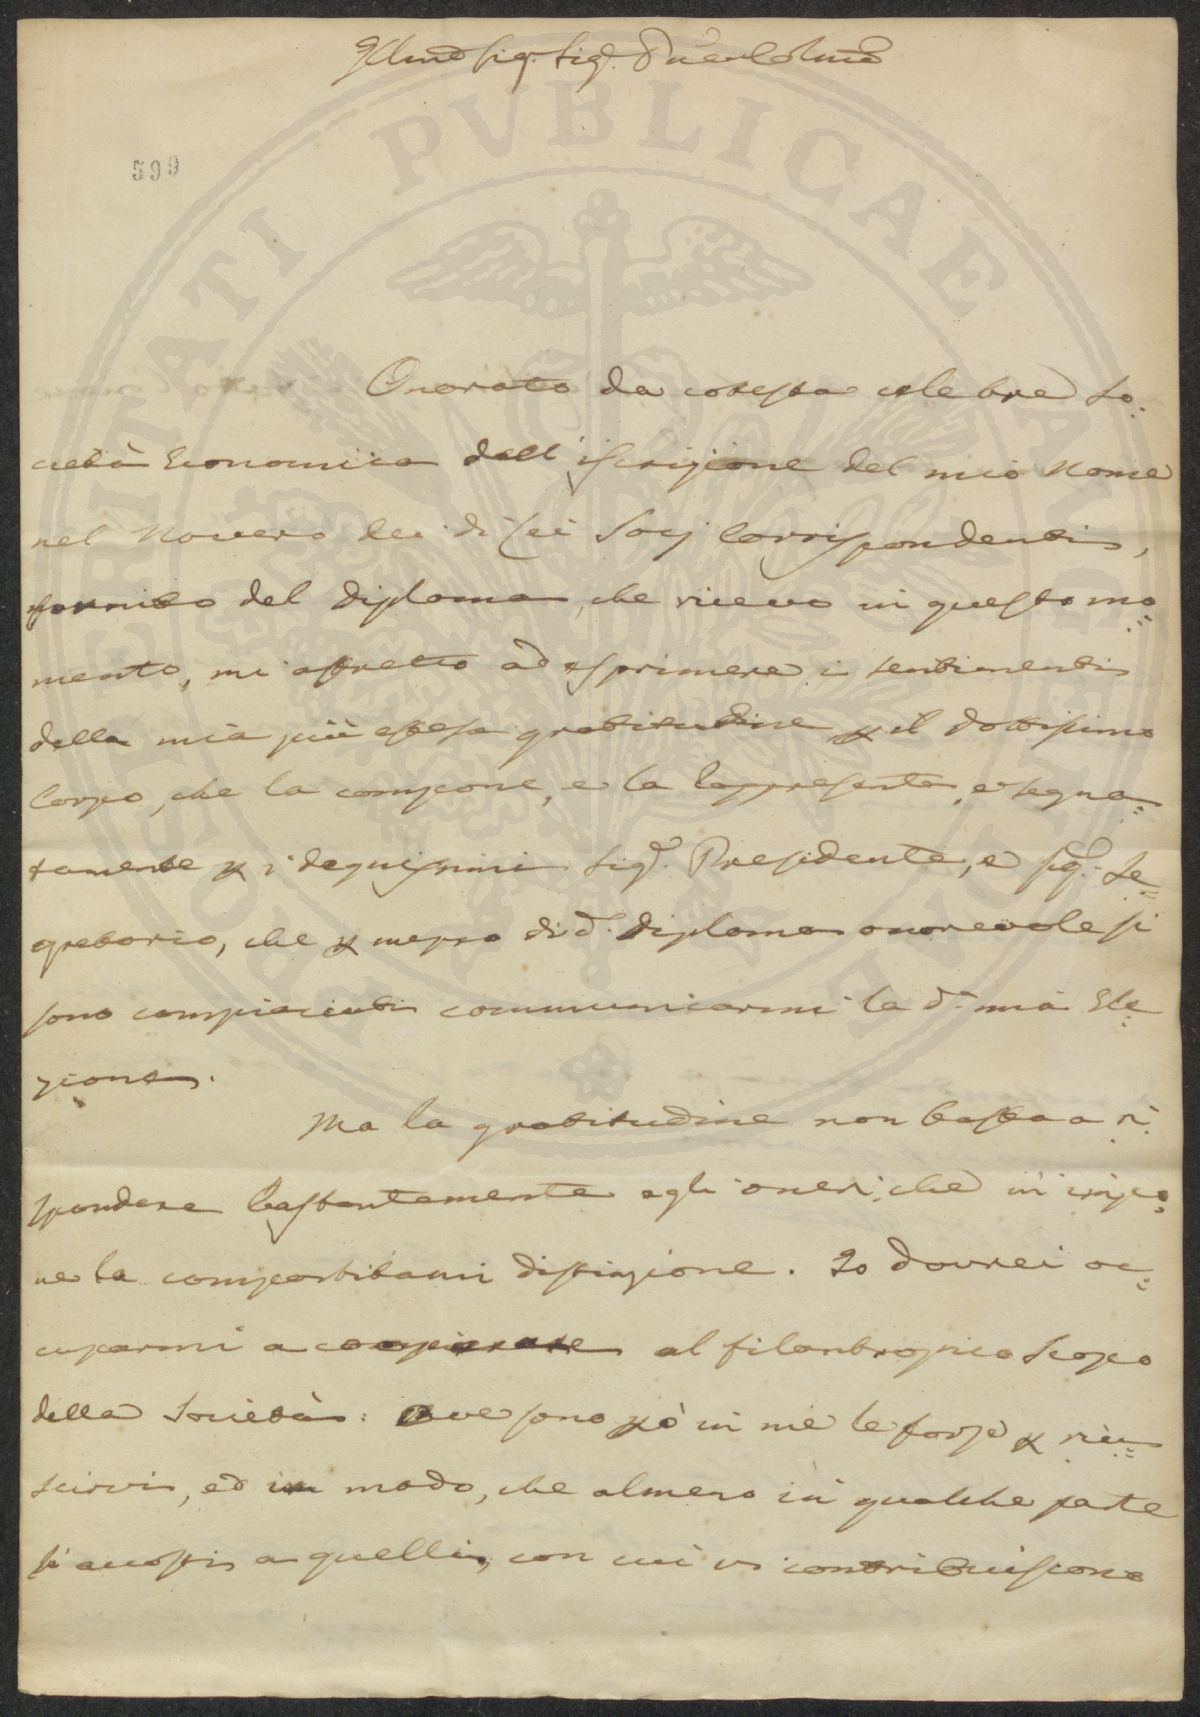 Illmo Sig. Sig.
599
Onorato da cotesta celebre So:
cietà Economica dell'iscrizione del mio Nome
nel Novero dei di Lei Socj Corrispondenti,
fornito del diploma, che ricevo in questo mo=
mento, mi affretto ad esprimere i sentimenti
della mia più estesa gratitudine p il dottissimo
Corpo, che la compone, e la Rappresenta, e segna=
tamente p i degnissimi Sigi. Presidente, e Sig. Se=
gretario, che p mezzo di d. diploma onorevole si
sono compiaciuti communicarmi la d. mia Ele=
zione.
Ma la gratitudine non basta a ri:
spondere bastantemente agli oneri, che m'impo=
ne la compartitami distinzione. Io dovrei oc=
cuparmi a cooperare al filantropico Scopo
della Società: Ove sono pò in me le forze p riu=
scirvi, ed in modo, che almeno in qualche parte
si accosti a quelli, con cui vi contribuiscono
PROSPERITATI PVBLICAE AVGENDAE